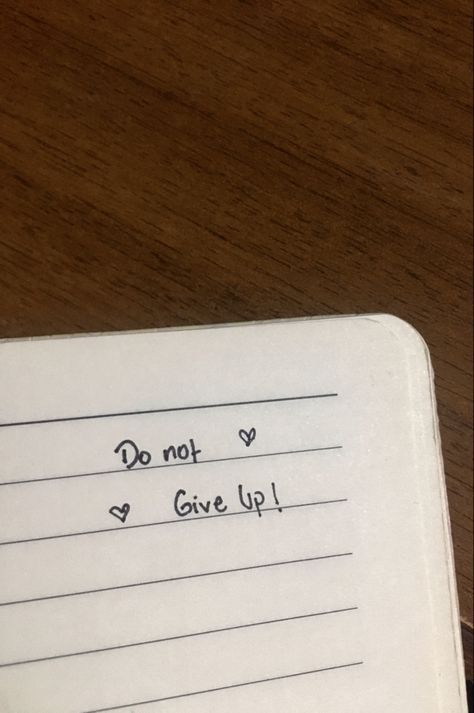 Do not ♡
♡ Give Up!